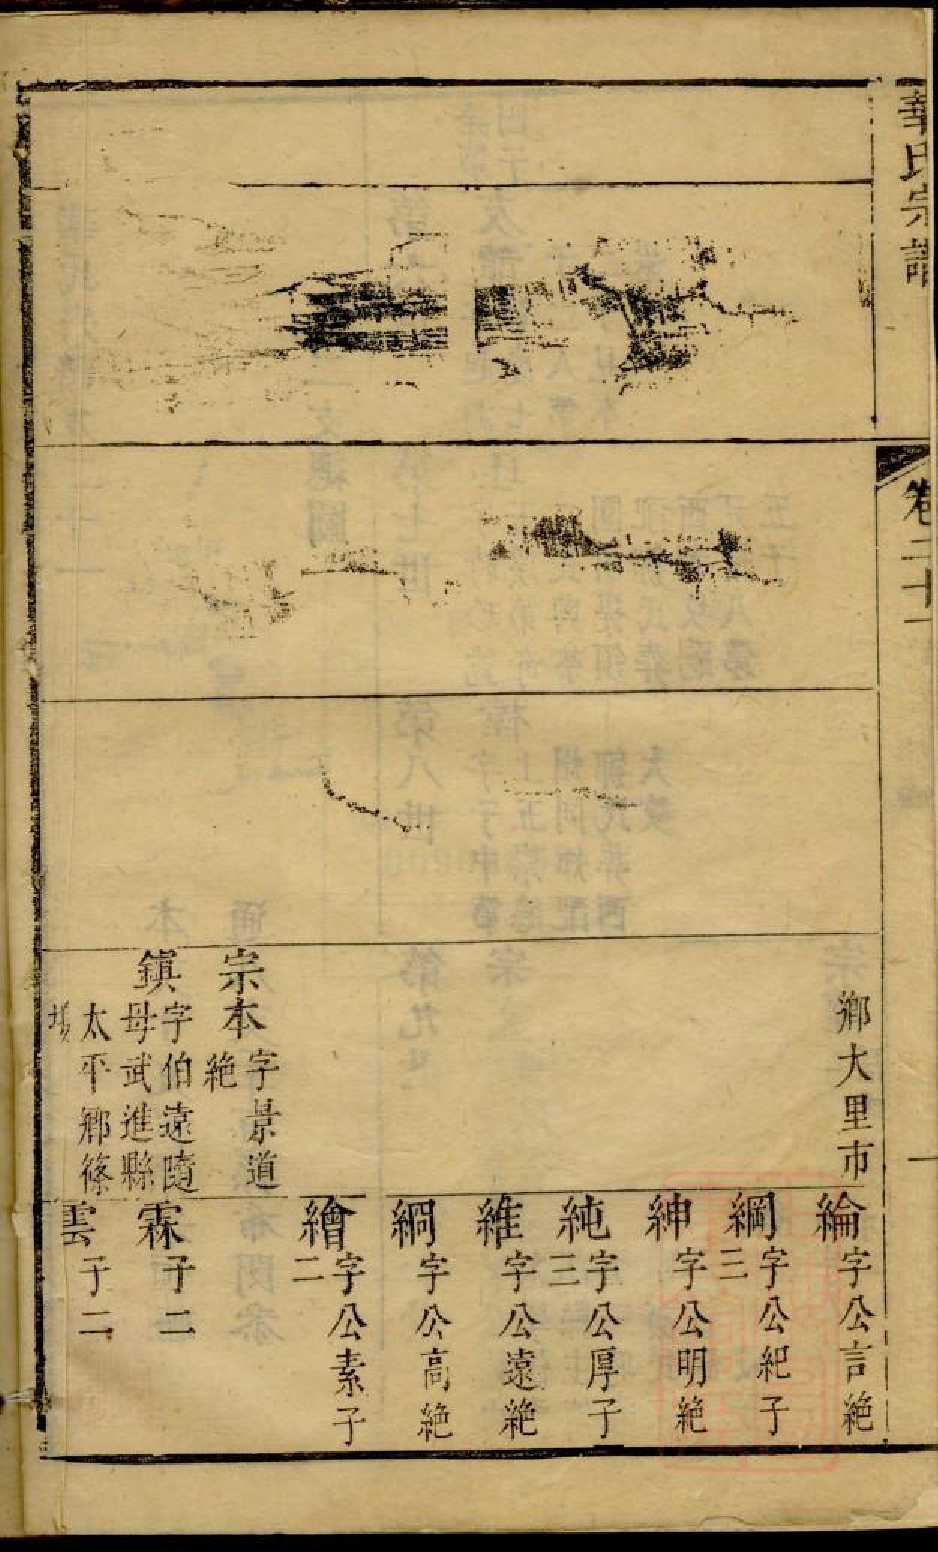 華氏宗譜
卷二十一
鄉大里市
宗本 字景道
絶
鎮 字伯遠隨
母武進縣
太平鄉篠
塲
綸 字公言絶
綱 字公紀子
三
紳 字公明絶
純 字公厚子
三
維 字公遠絶
綗 字公高絶
繪 字公素子
二
霖 子二
雲 子二